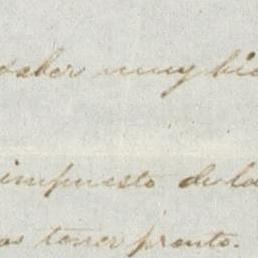 saber muy bie
impuesto de la
os tener pronto.